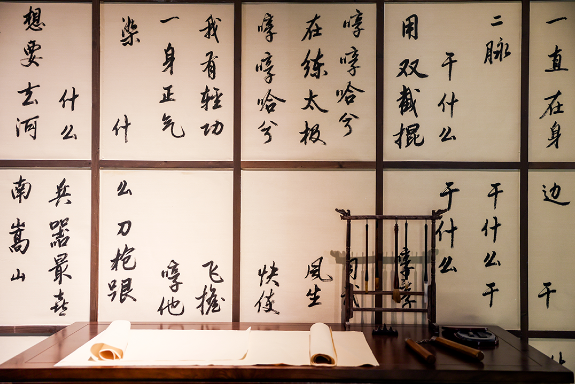 一直在身边 干
二脉 干什么 干
干什么 干什么
用双截棍
哼哼哈兮
在练太极 风生
哼哼哈兮 快使
我有轻功 飞檐
一身正气 哼他
染 什么刀枪跟
什么 兵器最喜
想要去河南嵩山